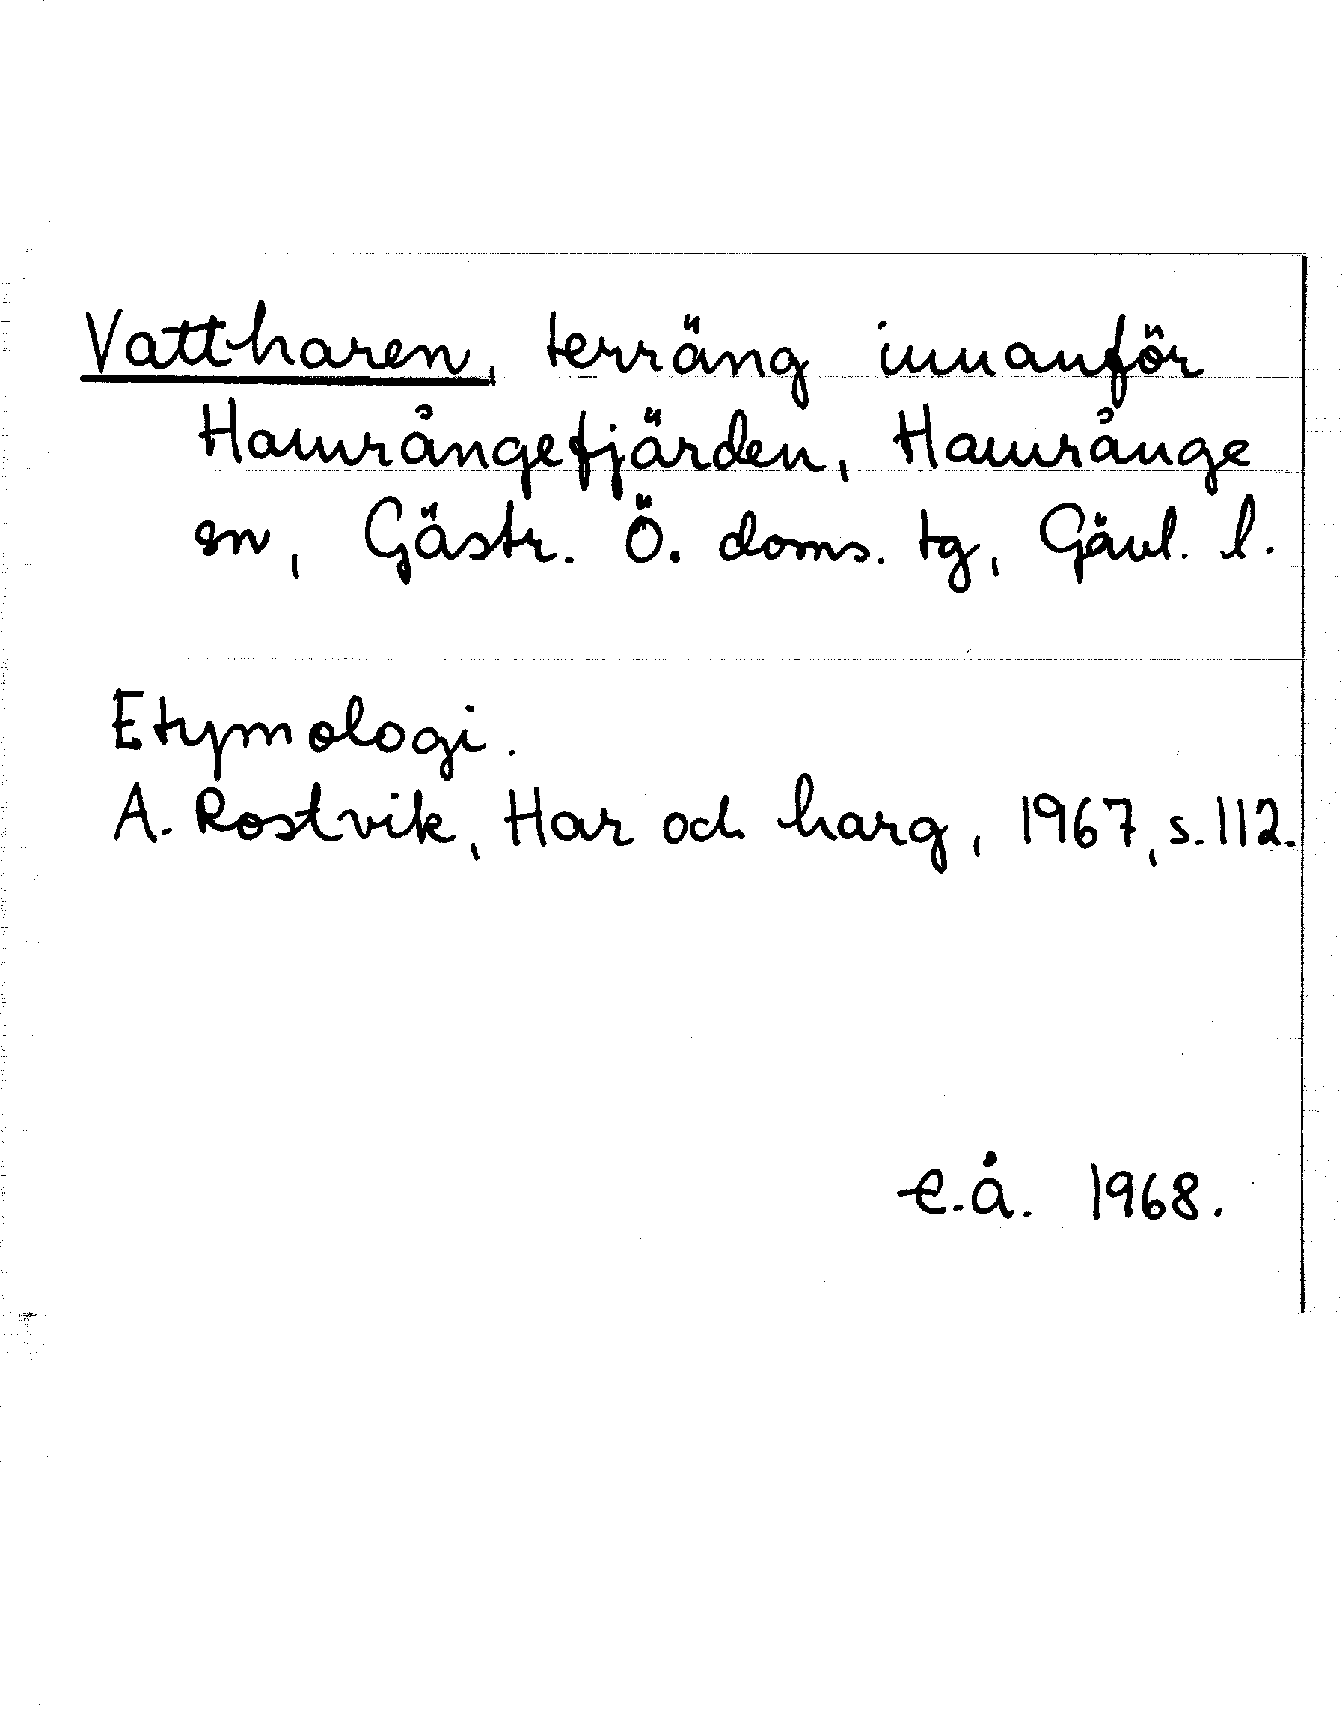 Vattharen, terräng innanför
Hamrångefjärden, Hamrånge
sn, Gästr. Ö. doms. tg, Gävl. l.
Etymologi.
A. Rostvik, Har och harg, 1967, s. 112.
e.å. 1968.